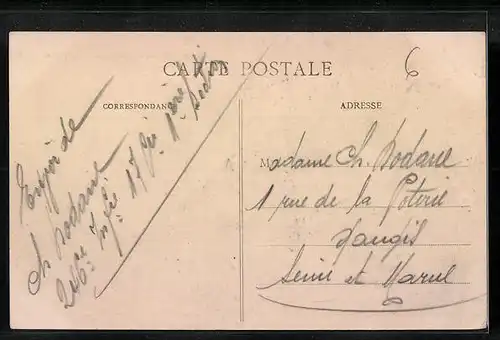 CARTE POSTALE
6
CORRESPONDANCE
ADRESSE
Envoi de
Ch Rodane
246e Infie 17e Cie 1ère Section
Madame Ch. Rodane
1 rue de la Poterie
Nangis
Seine et Marne